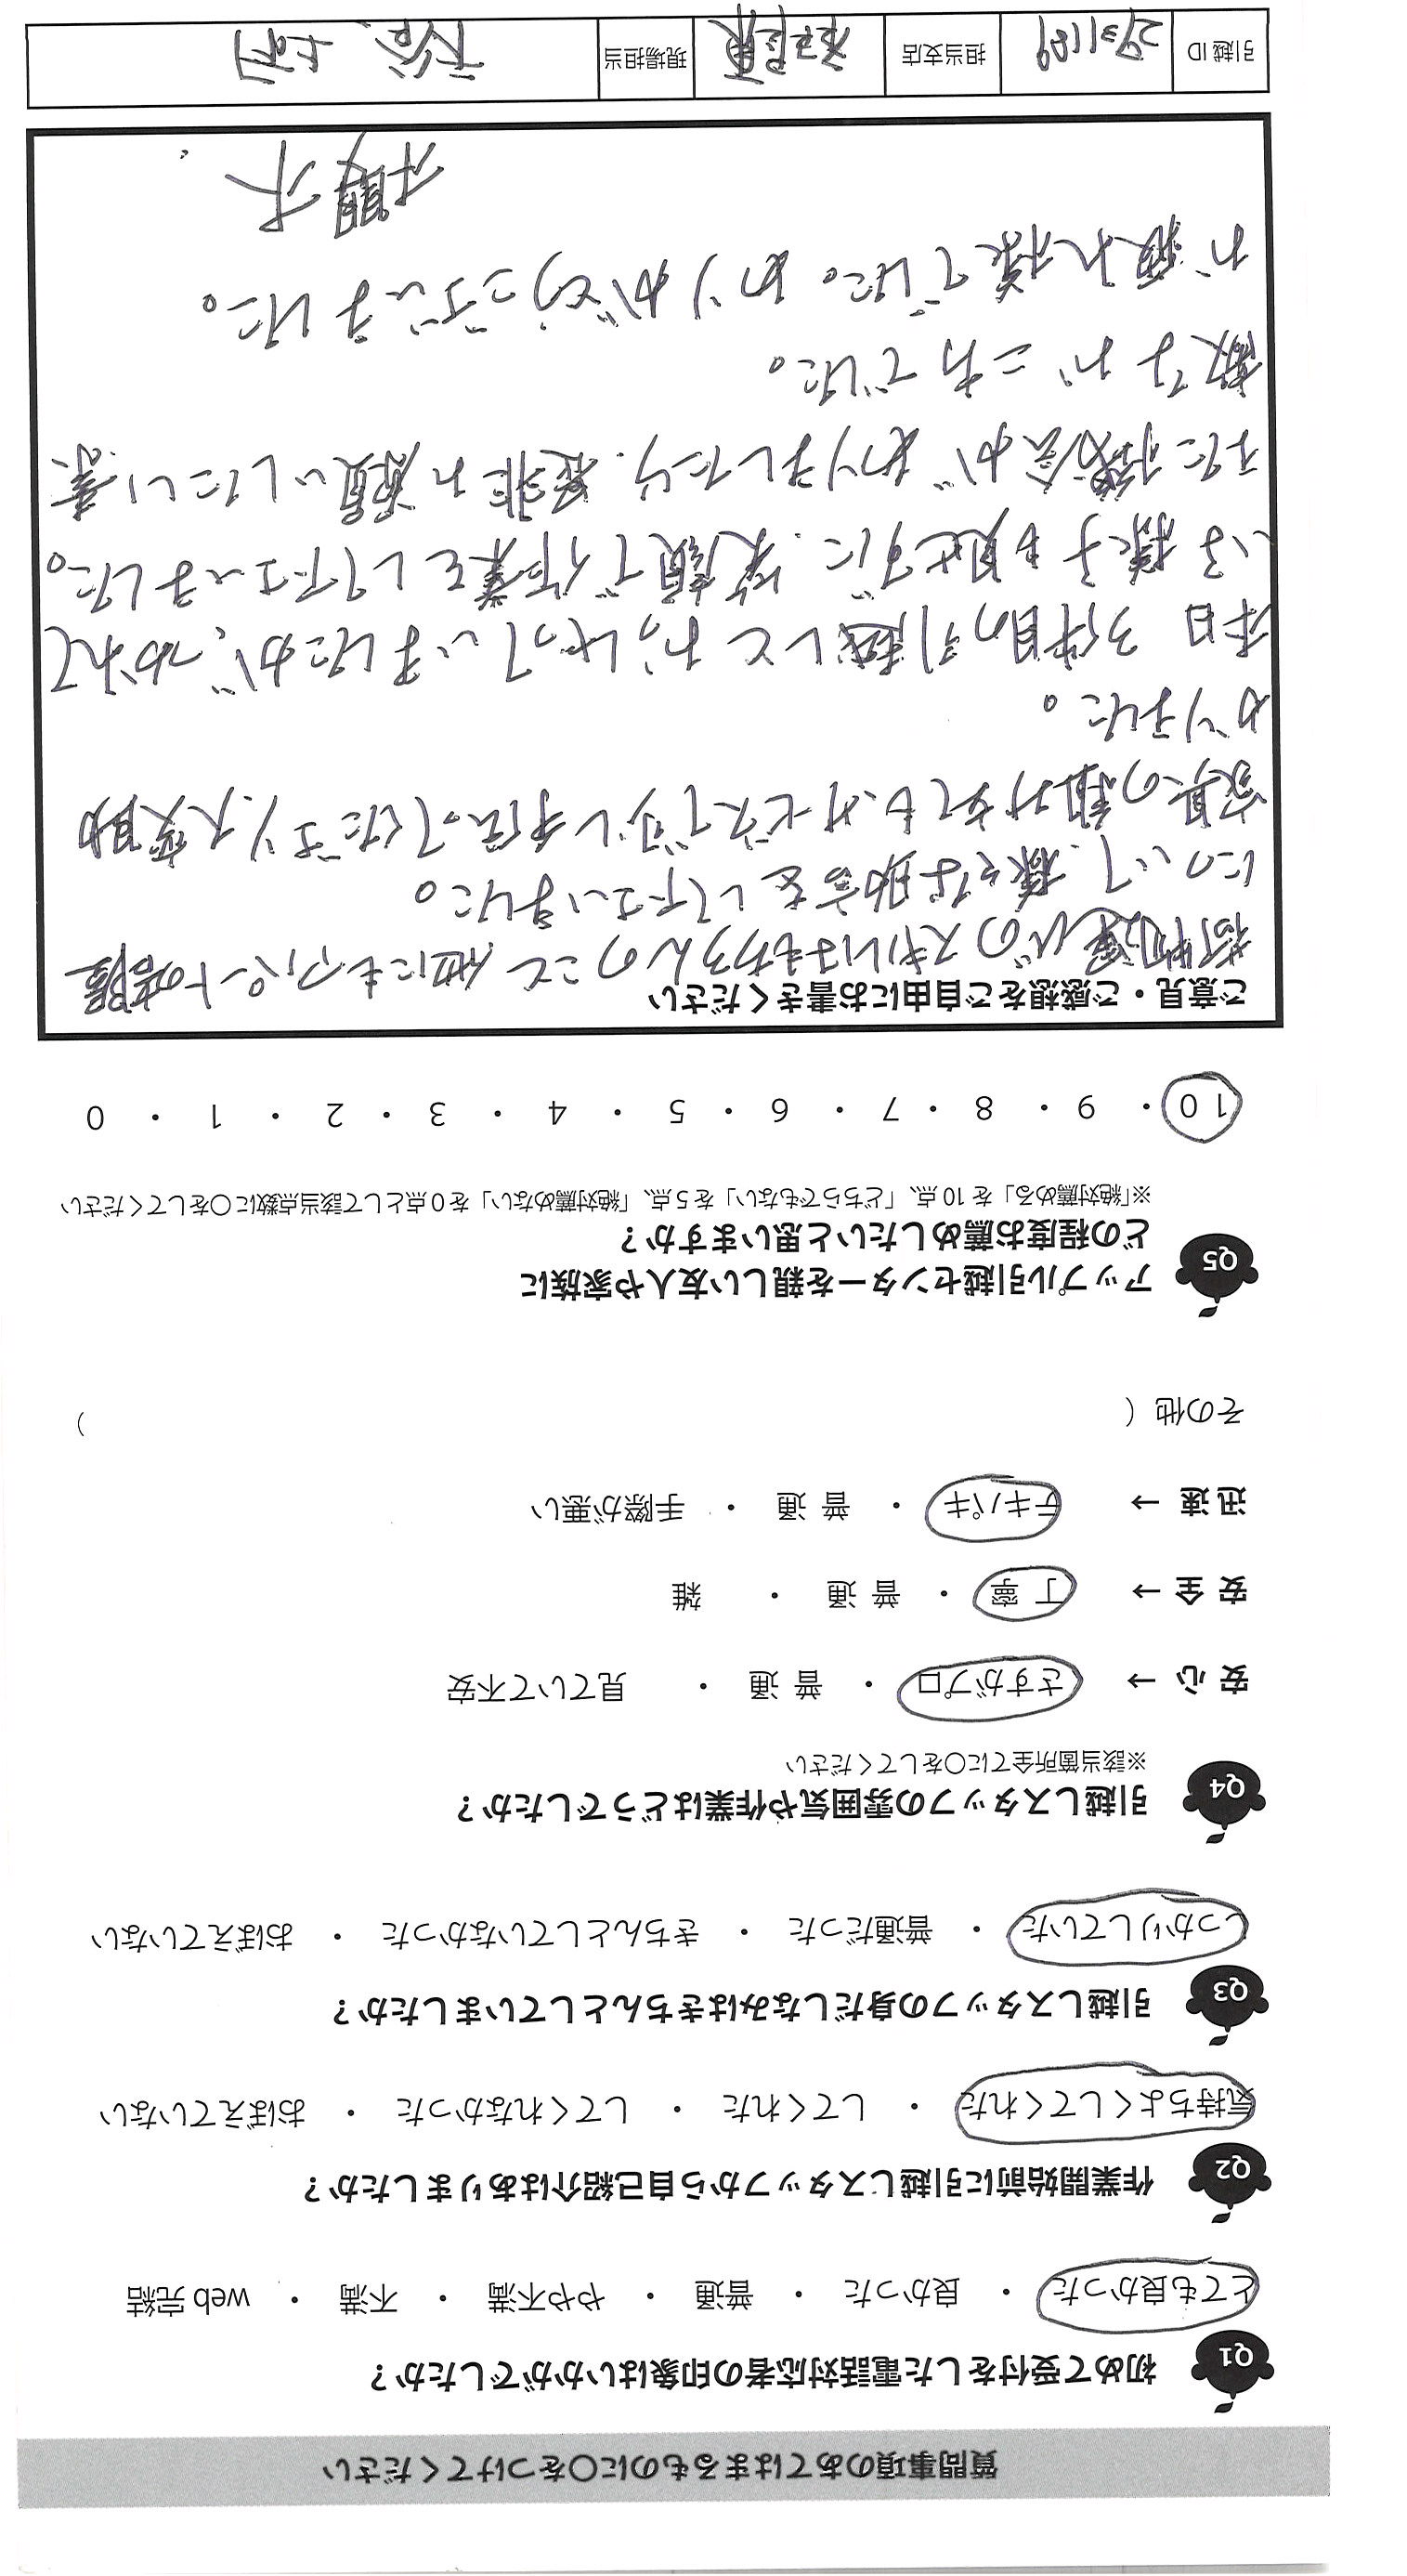 質問事項のあてはまるものに〇をつけてください
Q1 初めて受付をした電話対応者の印象はいかがでしたか？
とても良かった ・ 良かった ・ 普通 ・ やや不満 ・ 不満 ・ web 完結
Q2 作業開始前に引越しスタッフから自己紹介はありましたか？
気持ちよくしてくれた ・ してくれた ・ してくれなかった ・ おぼえていない
Q3 引越しスタッフの身だしなみはきちんとしていましたか？
しっかりしていた ・ 普通だった ・ きちんとしていなかった ・ おぼえていない
Q4 引越しスタッフの雰囲気や作業はどうでしたか？
※該当箇所全てに〇をしてください
安心 → さすがプロ ・ 普通 ・ 見ていて不安
安全 → 丁寧 ・ 普通 ・ 雑
迅速 → テキパキ ・ 普通 ・ 手際が悪い
その他（ ）
Q5 アップル引越センターを親しい友人や家族に
どの程度お薦めしたいと思いますか？
※「絶対薦める」を 10 点、「どちらでもない」を 5 点、「絶対薦めない」を 0 点として該当点数に〇をしてください
10 ・ 9 ・ 8 ・ 7 ・ 6 ・ 5 ・ 4 ・ 3 ・ 2 ・ 1 ・ 0
ご意見・ご感想をご自由にお書きください
荷物運びのスキルはもちろんのこと 他にもアパートの
について、様々な助言をして下さいました。
家具の組み立てもサービスで少し手伝ってくださり、大変助
かりました。
本日 3件目の引越しとおっしゃっていましたが、つかれて
いる様子も見せずに、笑顔で作業をして下さいました。
また機会がありましたら、是非お願いしたい、素
敵なおこころでした。
お疲れ様でした。ありがとうございました。
引越 ID 担当支店 現場担当